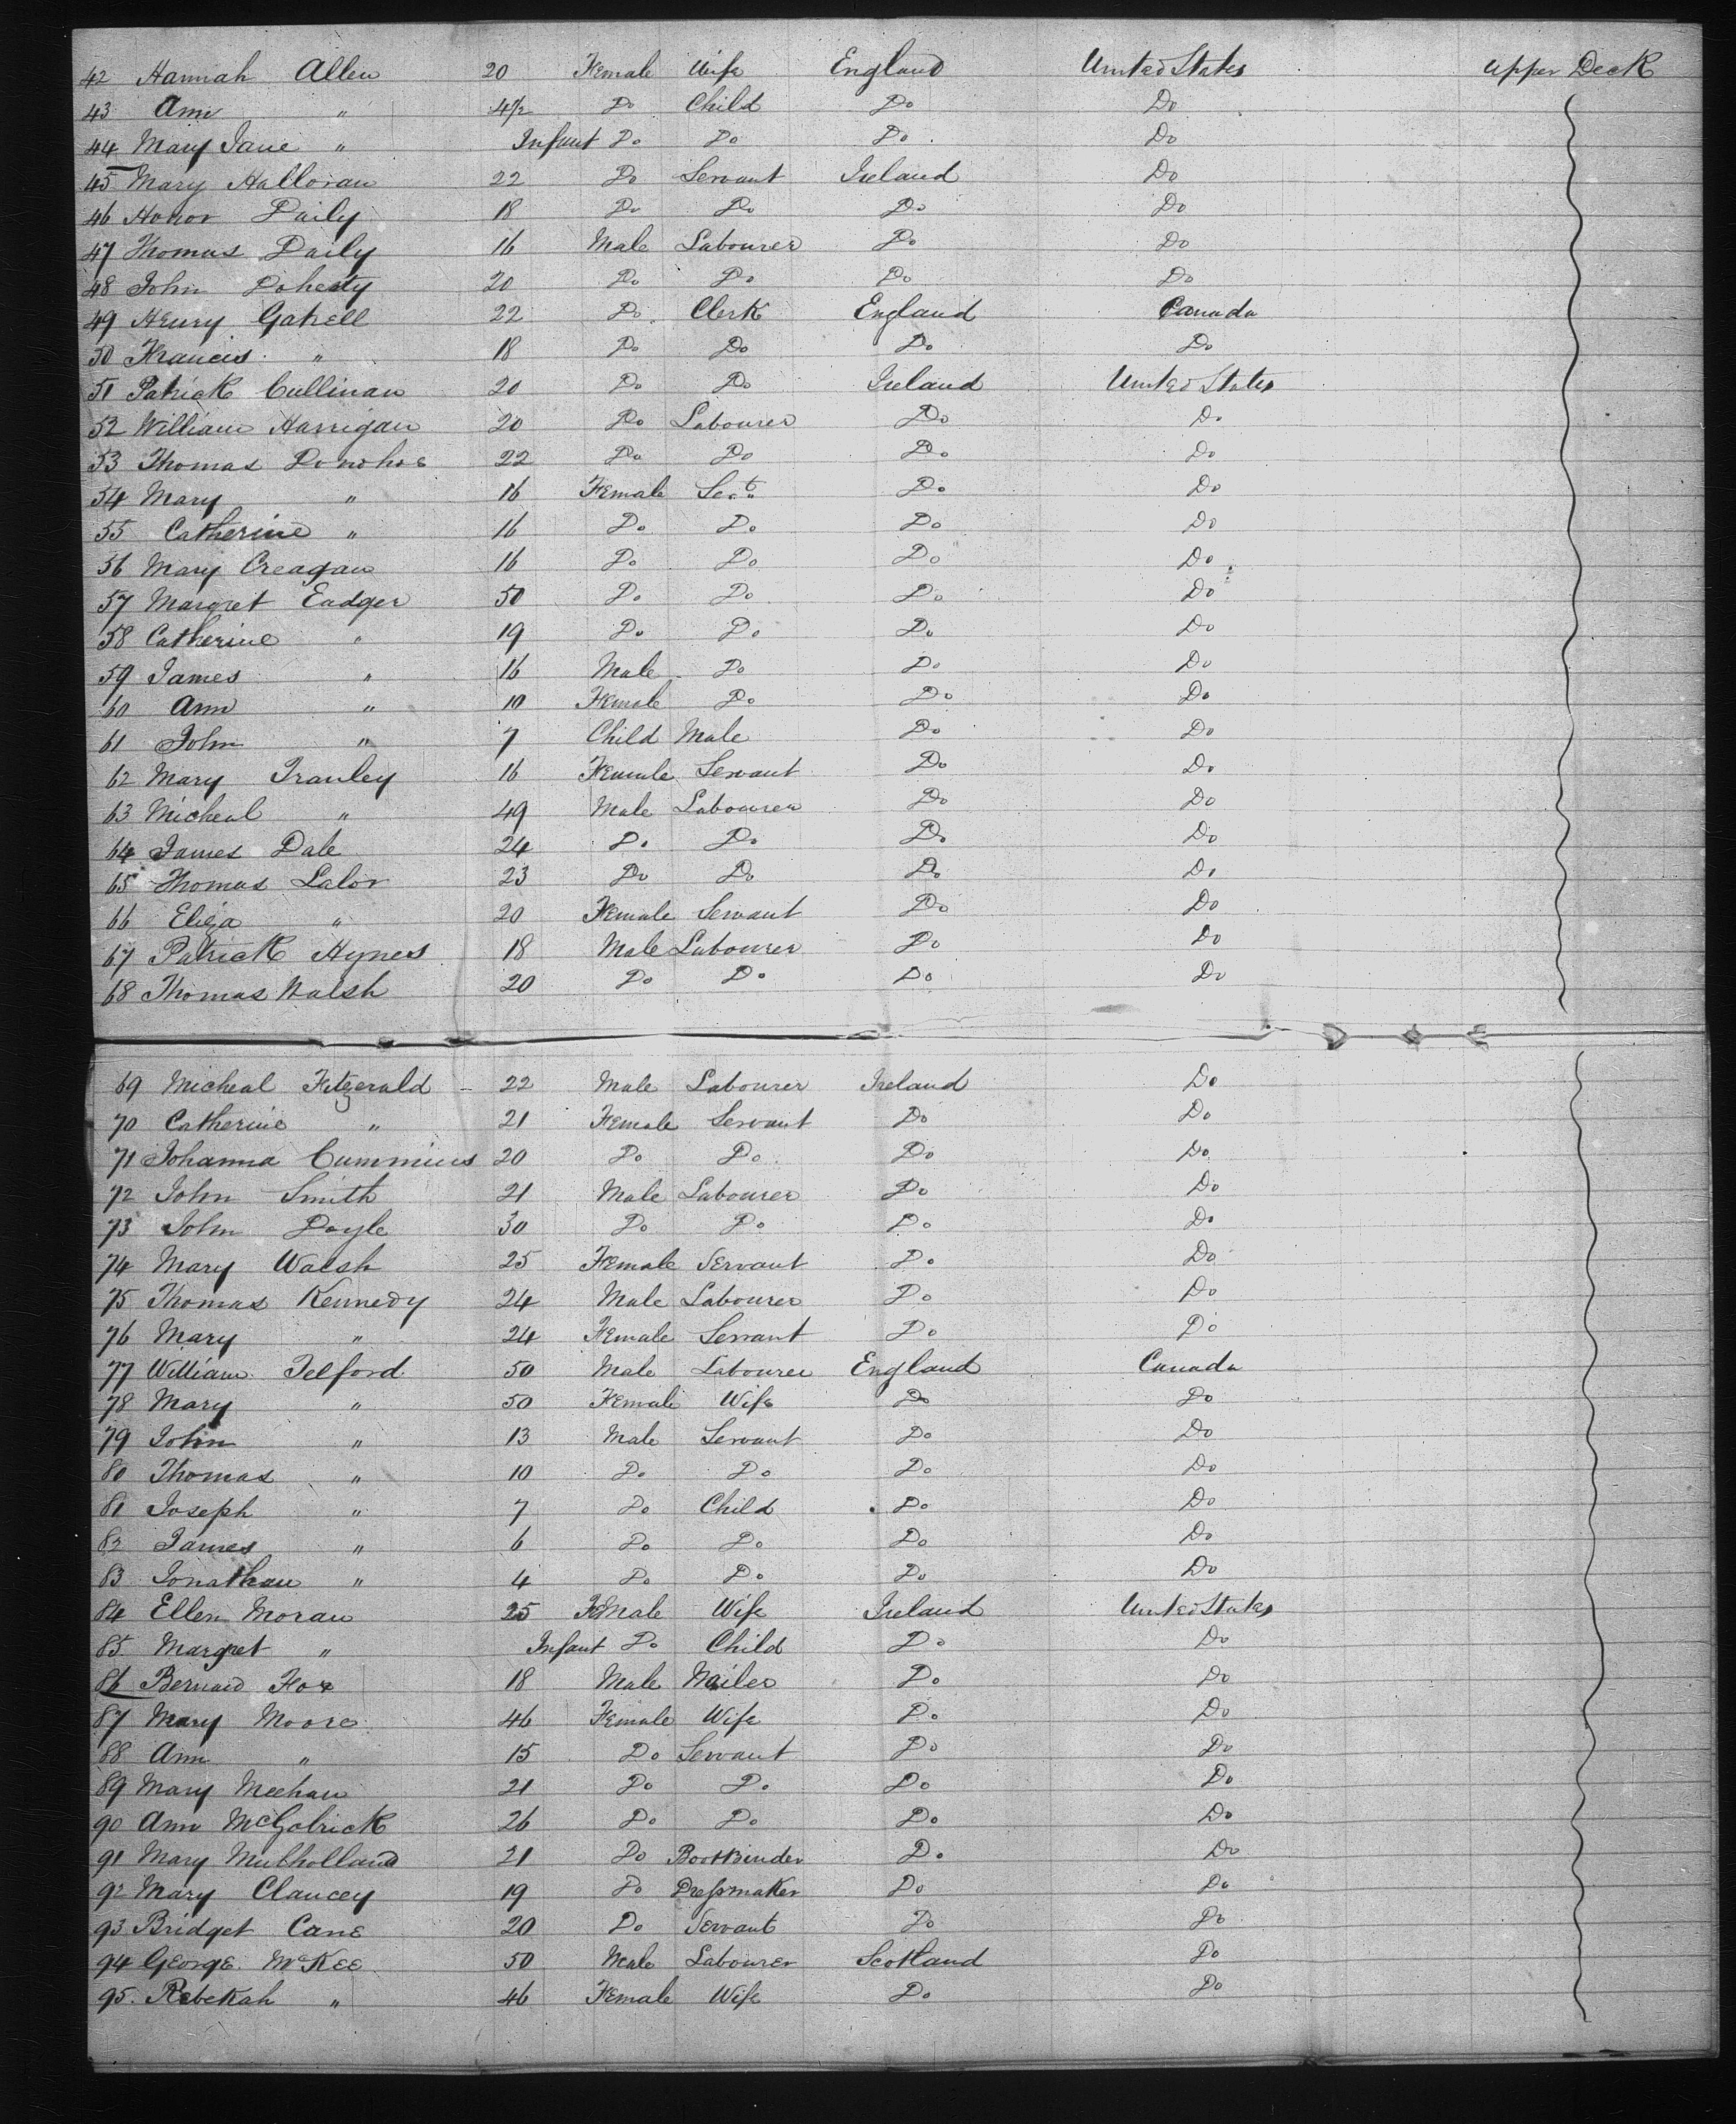 42 Hannah Allen 20 Female Wife England United States Upper Deck
43 Ann " 4½ Do Child Do Do
44 Mary Jane " Infant Do Do Do Do
45 Mary Halloran 22 Do Servant Ireland Do
46 Honor Daily 18 Do Do Do Do
47 Thomas Daily 16 Male Labourer Do Do
48 John Doherty 20 Do Do Do Do
49 Henry Gatrell 22 Do Clerk England Canada
50 Francis " 18 Do Do Do Do
51 Patrick Cullinan 20 Do Do Ireland United States
52 William Harrigan 20 Do Labourer Do Do
53 Thomas Donohoe 22 Do Do Do Do
54 Mary " 16 Female Do Do
55 Catherine " 16 Do Do Do Do
56 Mary Creagan 16 Do Do Do Do
57 Margret Eadger 50 Do Do Do Do
58 Catherine " 19 Do Do Do Do
59 James " 16 Male Do Do Do
60 Ann " 10 Female Do Do Do
61 John " 7 Child Male Do Do
62 Mary Tranley 16 Female Servant Do Do
63 Micheal " 49 Male Labourer Do Do
64 James Dale 24 Do Do Do Do
65 Thomas Lalor 23 Do Do Do Do
66 Eliza " 20 Female Servant Do Do
67 Patrick Hynes 18 Male Labourer Do Do
68 Thomas Walsh 20 Do Do Do Do
69 Micheal Fitzgerald 22 Male Labourer Ireland Do
70 Catherine " 21 Female Servant Do Do
71 Johanna Cummins 20 Do Do Do Do
72 John Smith 21 Male Labourer Do Do
73 John Doyle 30 Do Do Do Do
74 Mary Walsh 25 Female Servant Do Do
75 Thomas Kennedy 24 Male Labourer Do Do
76 Mary " 24 Female Servant Do Do
77 William Telford 50 Male Labourer England Canada
78 Mary " 50 Female Wife Do Do
79 John " 13 Male Servant Do Do
80 Thomas " 10 Do Do Do Do
81 Joseph " 7 Do Child Do Do
82 James " 6 Do Do Do Do
83 Jonathan " 4 Do Do Do Do
84 Ellen Moran 25 Female Wife Ireland United States
85 Margret " Infant Do Child Do Do
86 Bernard Fox 18 Male Nailer Do Do
87 Mary Moore 46 Female Wife Do Do
88 Ann " 15 Do Servant Do Do
89 Mary Meehan 21 Do Do Do Do
90 Ann McGolrick 26 Do Do Do Do
91 Mary Mulholland 21 Do Bootbinder Do Do
92 Mary Clancey 19 Do Dressmaker Do Do
93 Bridget Cane 20 Do Servant Do Do
94 George McKee 50 Male Labourer Scotland Do
95 Rebekah " 46 Female Wife Do Do